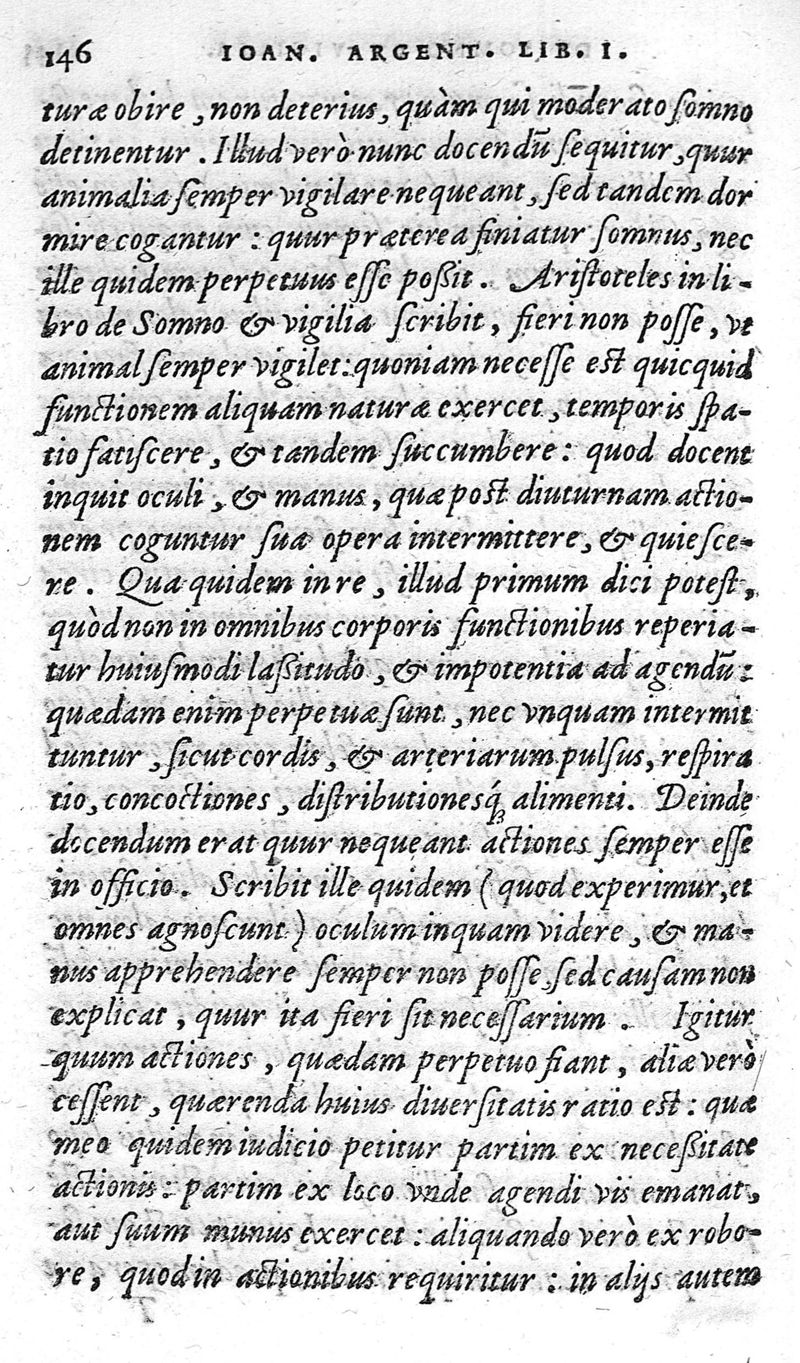 146 IOAN. ARGENT. LIB. I.
turæ obire, non deterius, quàm qui moderato somno
detinentur. Illud verò nunc docendū sequitur, quur
animalia semper vigilare nequeant, sed tandem dor
mire cogantur : quur præterea finiatur somnus, nec
ille quidem perpetuus esse poßit. Aristoteles in li-
bro de Somno & vigilia scribit, fieri non posse, vt
animal semper vigilet: quoniam necesse est quicquid
functionem aliquam naturæ exercet, temporis spa-
tio fatiscere, & tandem succumbere: quod docent
inquit oculi, & manus, quæ post diuturnam actio-
nem coguntur sua opera intermittere, & quiesce-
re. Qua quidem in re, illud primum dici potest,
quòd non in omnibus corporis functionibus reperia-
tur huiusmodi laßitudo, & impotentia ad agendū:
quædam enim perpetuæ sunt, nec vnquam intermit
tuntur, sicut cordis, & arteriarum pulsus, respira
tio, concoctiones, distributionesq́; alimenti. Deinde
docendum erat quur nequeant actiones semper esse
in officio. Scribit ille quidem (quod experimur, et
omnes agnoscunt) oculum inquam videre, & ma-
nus apprehendere semper non posse, sed causam non
explicat, quur ita fieri sit necessarium. Igitur
quum actiones, quædam perpetuo fiant, aliæ verò
cessent, quærenda huius diuersitatis ratio est: quæ
meo quidem iudicio petitur partim ex neceßitate
actionis: partim ex loco vnde agendi vis emanat,
aut suum munus exercet: aliquando verò ex robo-
re, quod in actionibus requiritur : in alijs autem